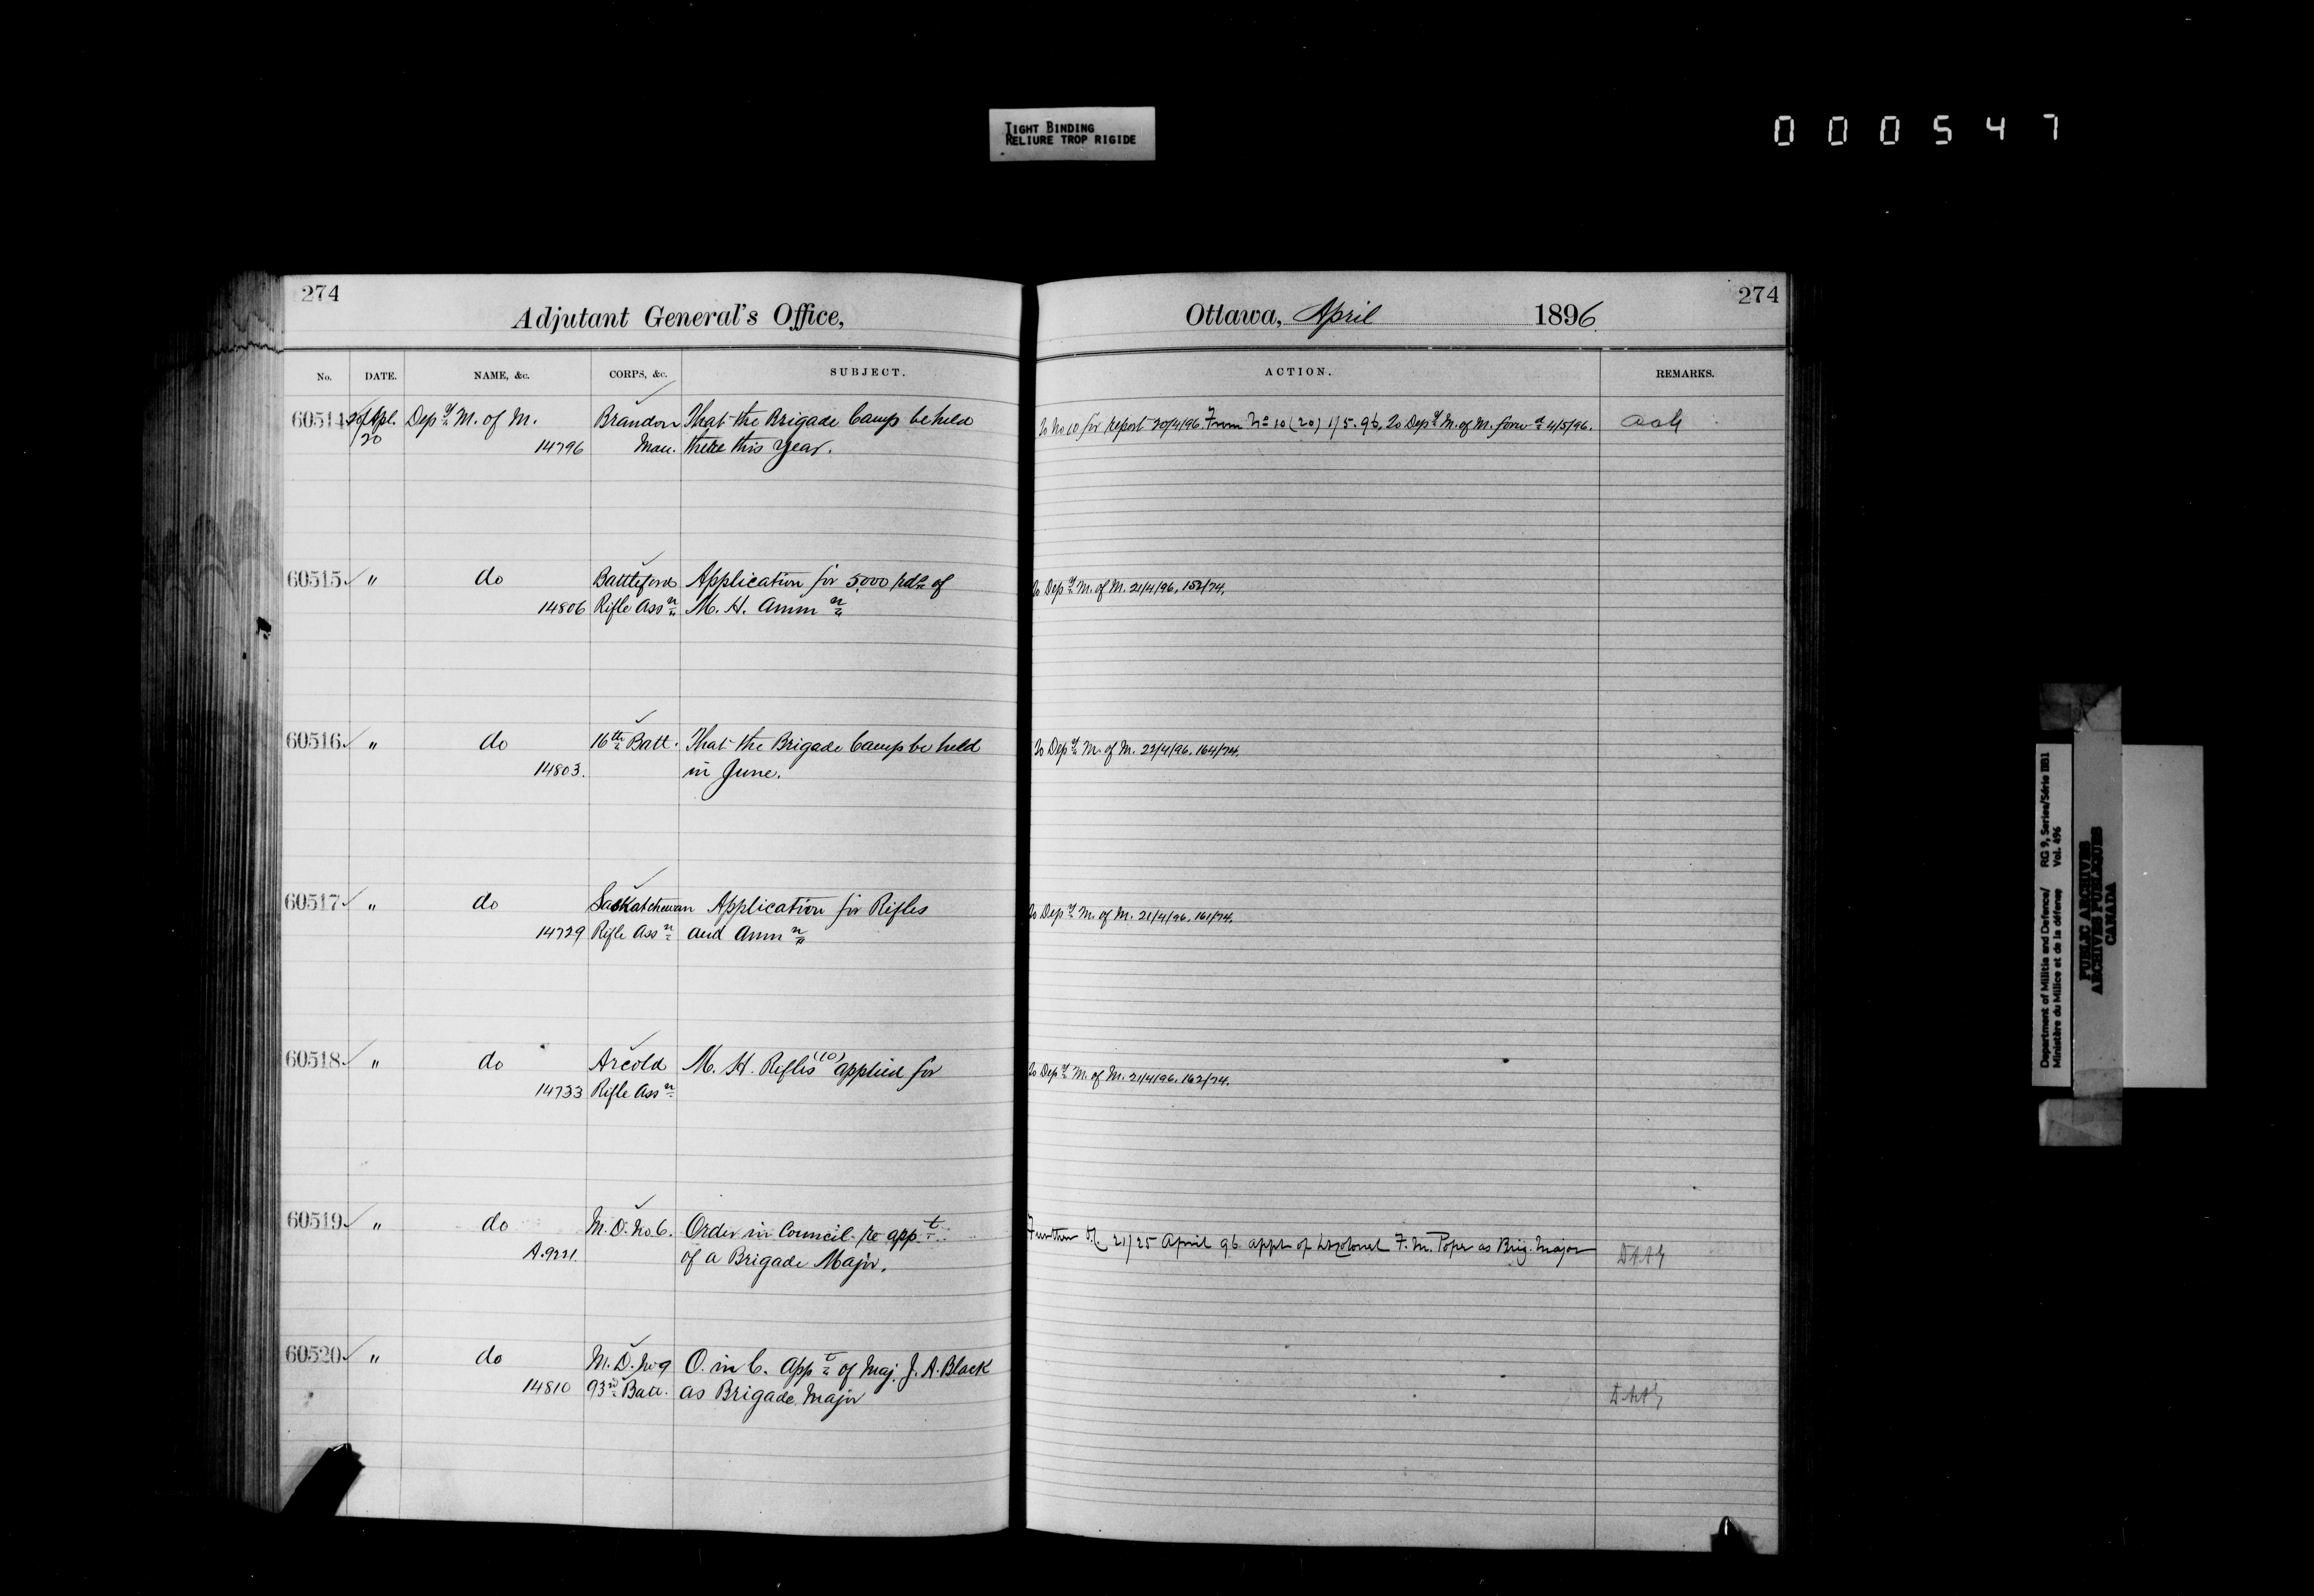 TIGHT BINDING
RELIURE TROP RIGIDE
000547
274
Adjutant General's Office,
No. DATE. NAME, &c. CORPS, &c. SUBJECT.
60514 Apl. Depy M. of M. Brandon That the Brigade Camp be held
20 14796 Man. there this year.
60515 " do Battleford Application for 5000 rds of
14806 Rifle Assn M. H. Ammn
60516 " do 16th Batt. That the Brigade Camp be held
14803. in June.
60517 " do Saskatchewan Application for Rifles
14729 Rifle Assn and Ammn
60518 " do Arcola M. H. Rifles (10) applied for
14733 Rifle Assn
60519 " do M. D. No 6. Order in Council re appt
A.9221. of a Brigade Major.
60520 " do M. D. No 9 O. in C. Appt of Maj. J. A. Black
14810 93rd Batt. as Brigade Major
274
Ottawa, April 1896
ACTION. REMARKS.
To No 10 for report 20/4/96. From No 10 (20) 1/5.96. To Depy M. of M. forwd 4/5/96.
To Depy M. of M. 21/4/96. 152/74.
To Depy M. of M. 23/4/96. 164/74.
To Depy M. of M. 21/4/96. 161/74.
To Depy M. of M. 21/4/96. 162/74.
Further 21/25 April 96 appt of Lt Colonel F. M. Pope as Brig. Major DAAG
DAAG
Department of Militia and Defence/ RG 9, Series/Série IIB1
Ministère du Milice et de la défense Vol. 496
PUBLIC ARCHIVES
ARCHIVES PUBLIQUES
CANADA